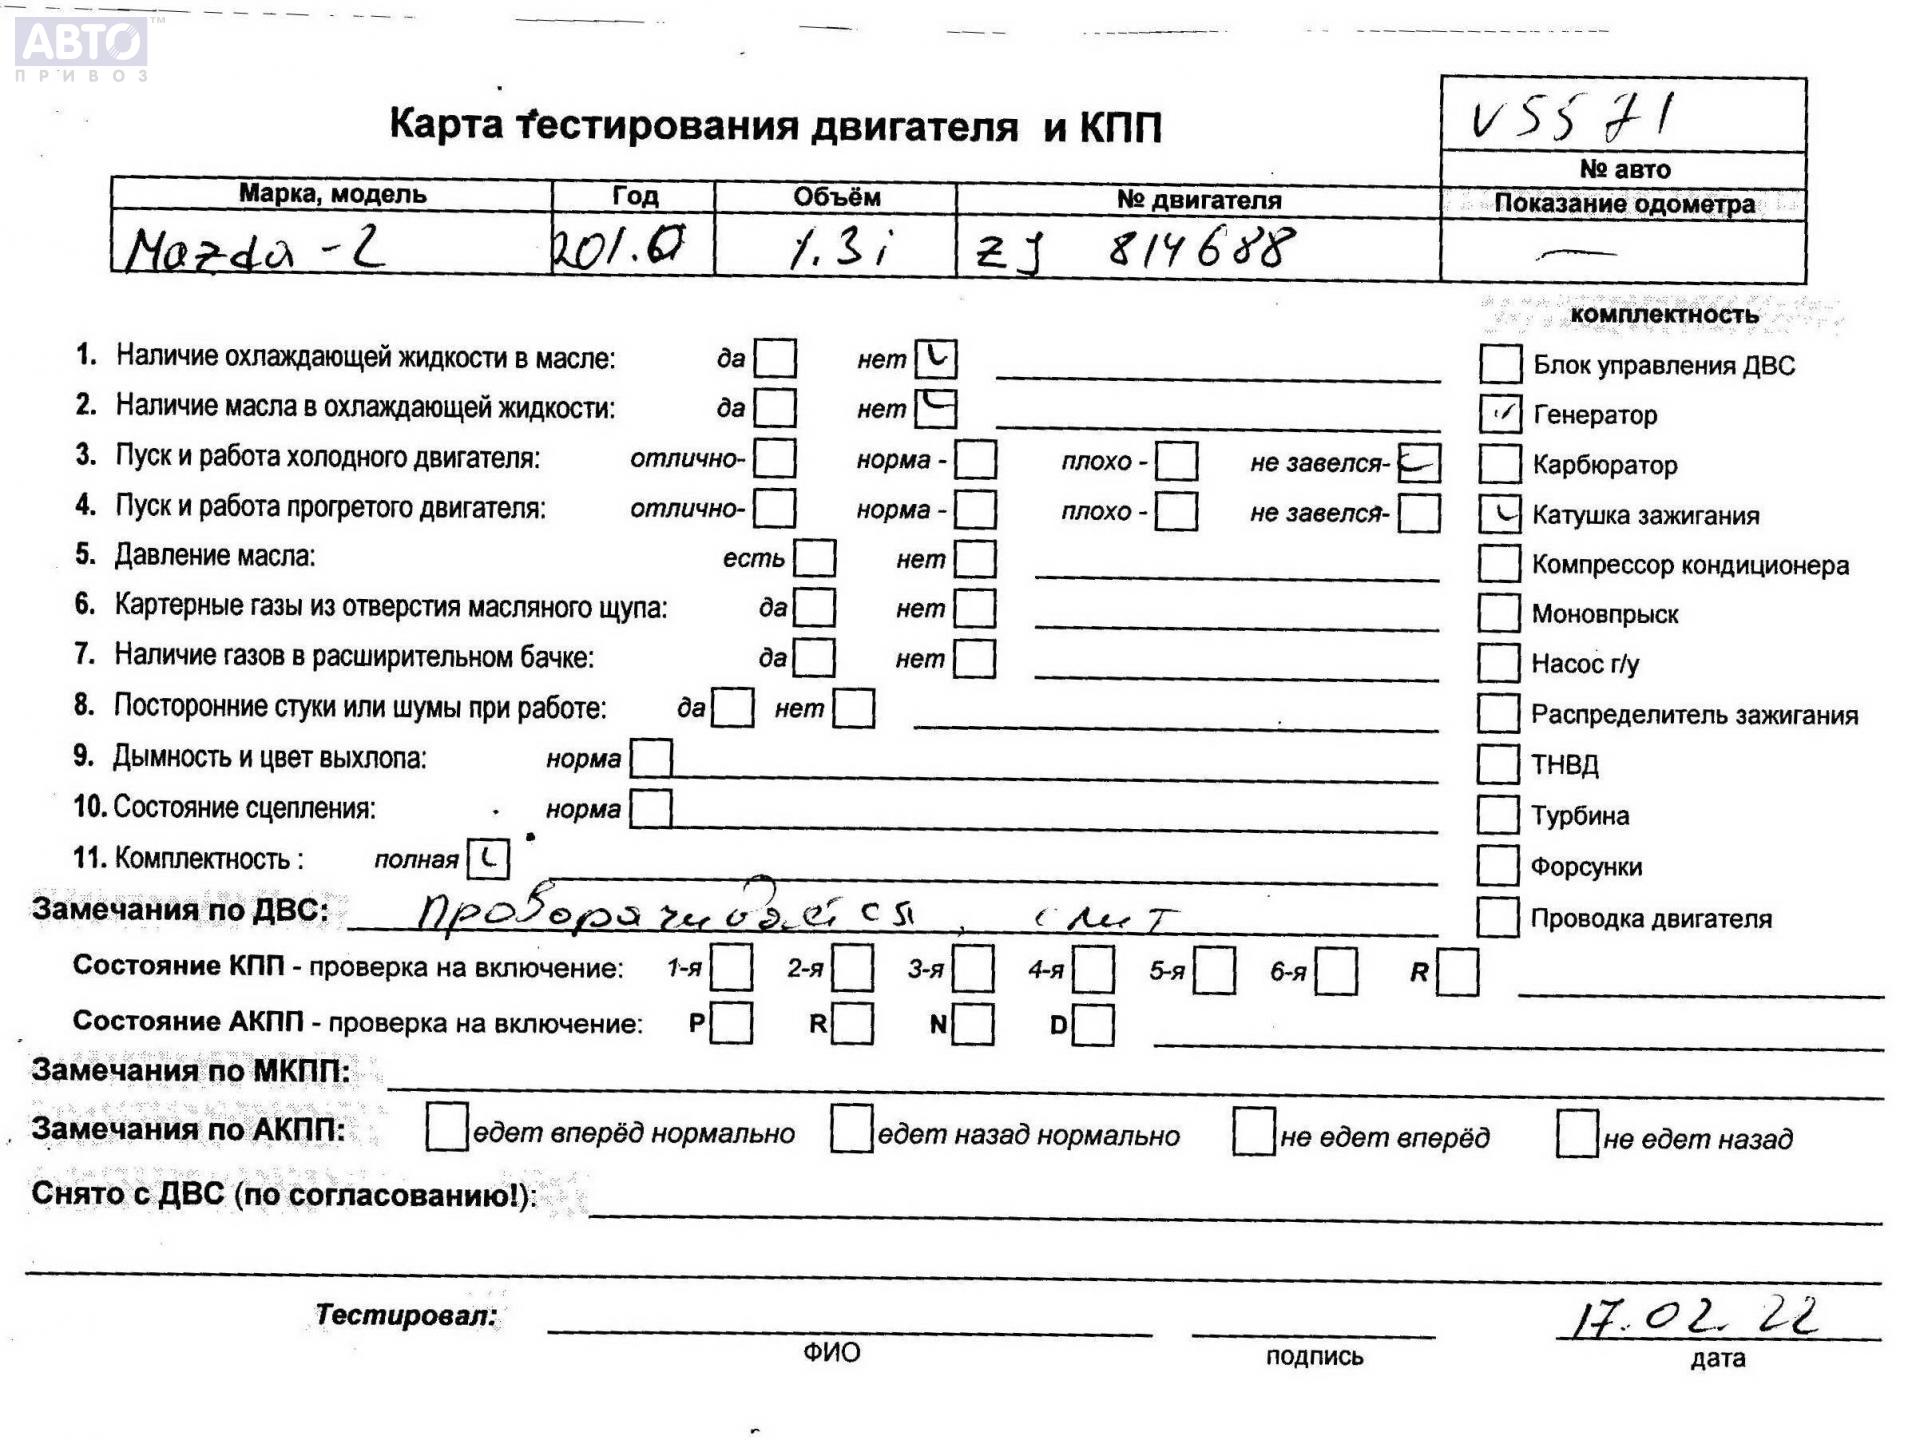 АВТО™
ПРИВОЗ
Карта тестирования двигателя и КПП
V5571
№ авто
Марка, модель Год Объём № двигателя Показание одометра
Mazda-2 201.0 1.3i ZJ 814688 —
комплектность
1. Наличие охлаждающей жидкости в масле: да нет Блок управления ДВС
2. Наличие масла в охлаждающей жидкости: да нет Генератор
3. Пуск и работа холодного двигателя: отлично- норма - плохо - не завелся- Карбюратор
4. Пуск и работа прогретого двигателя: отлично- норма - плохо - не завелся- Катушка зажигания
5. Давление масла: есть нет Компрессор кондиционера
6. Картерные газы из отверстия масляного щупа: да нет Моновпрыск
7. Наличие газов в расширительном бачке: да нет Насос г/у
8. Посторонние стуки или шумы при работе: да нет Распределитель зажигания
9. Дымность и цвет выхлопа: норма ТНВД
10. Состояние сцепления: норма Турбина
11. Комплектность : полная Форсунки
Замечания по ДВС: проворачивается, Проводка двигателя
Состояние КПП - проверка на включение: 1-я 2-я 3-я 4-я 5-я 6-я R
Состояние АКПП - проверка на включение: P R N D
Замечания по МКПП:
Замечания по АКПП: едет вперёд нормально едет назад нормально не едет вперёд не едет назад
Снято с ДВС (по согласованию!):
Тестировал: 17.02.22
ФИО подпись дата